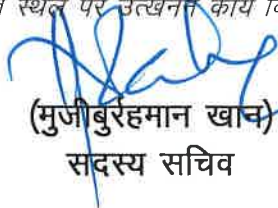 स्थल पर उत्खनन कार्य
(मुजीबुर्रहमान खान)
सदस्य सचिव